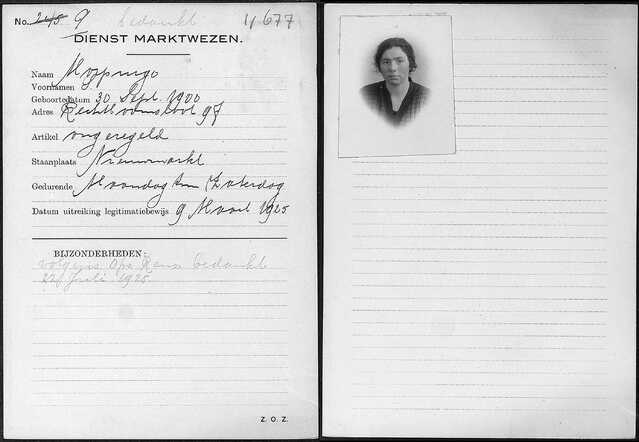 No. 245 9 bedankt 4677
DIENST MARKTWEZEN.
Naam
Voornamen S
Geboortedatum 30 Sept. 1900
Adres Rechtboomsloot 97
Artikel ongeregeld
Staanplaats Nieuwmarkt
Gedurende Maandag t/m Zaterdag
Datum uitreiking legitimatiebewijs 9 Maart 1925
BIJZONDERHEDEN:
volgens Opz bedankt
22 Juli 1925
Z. O. Z.